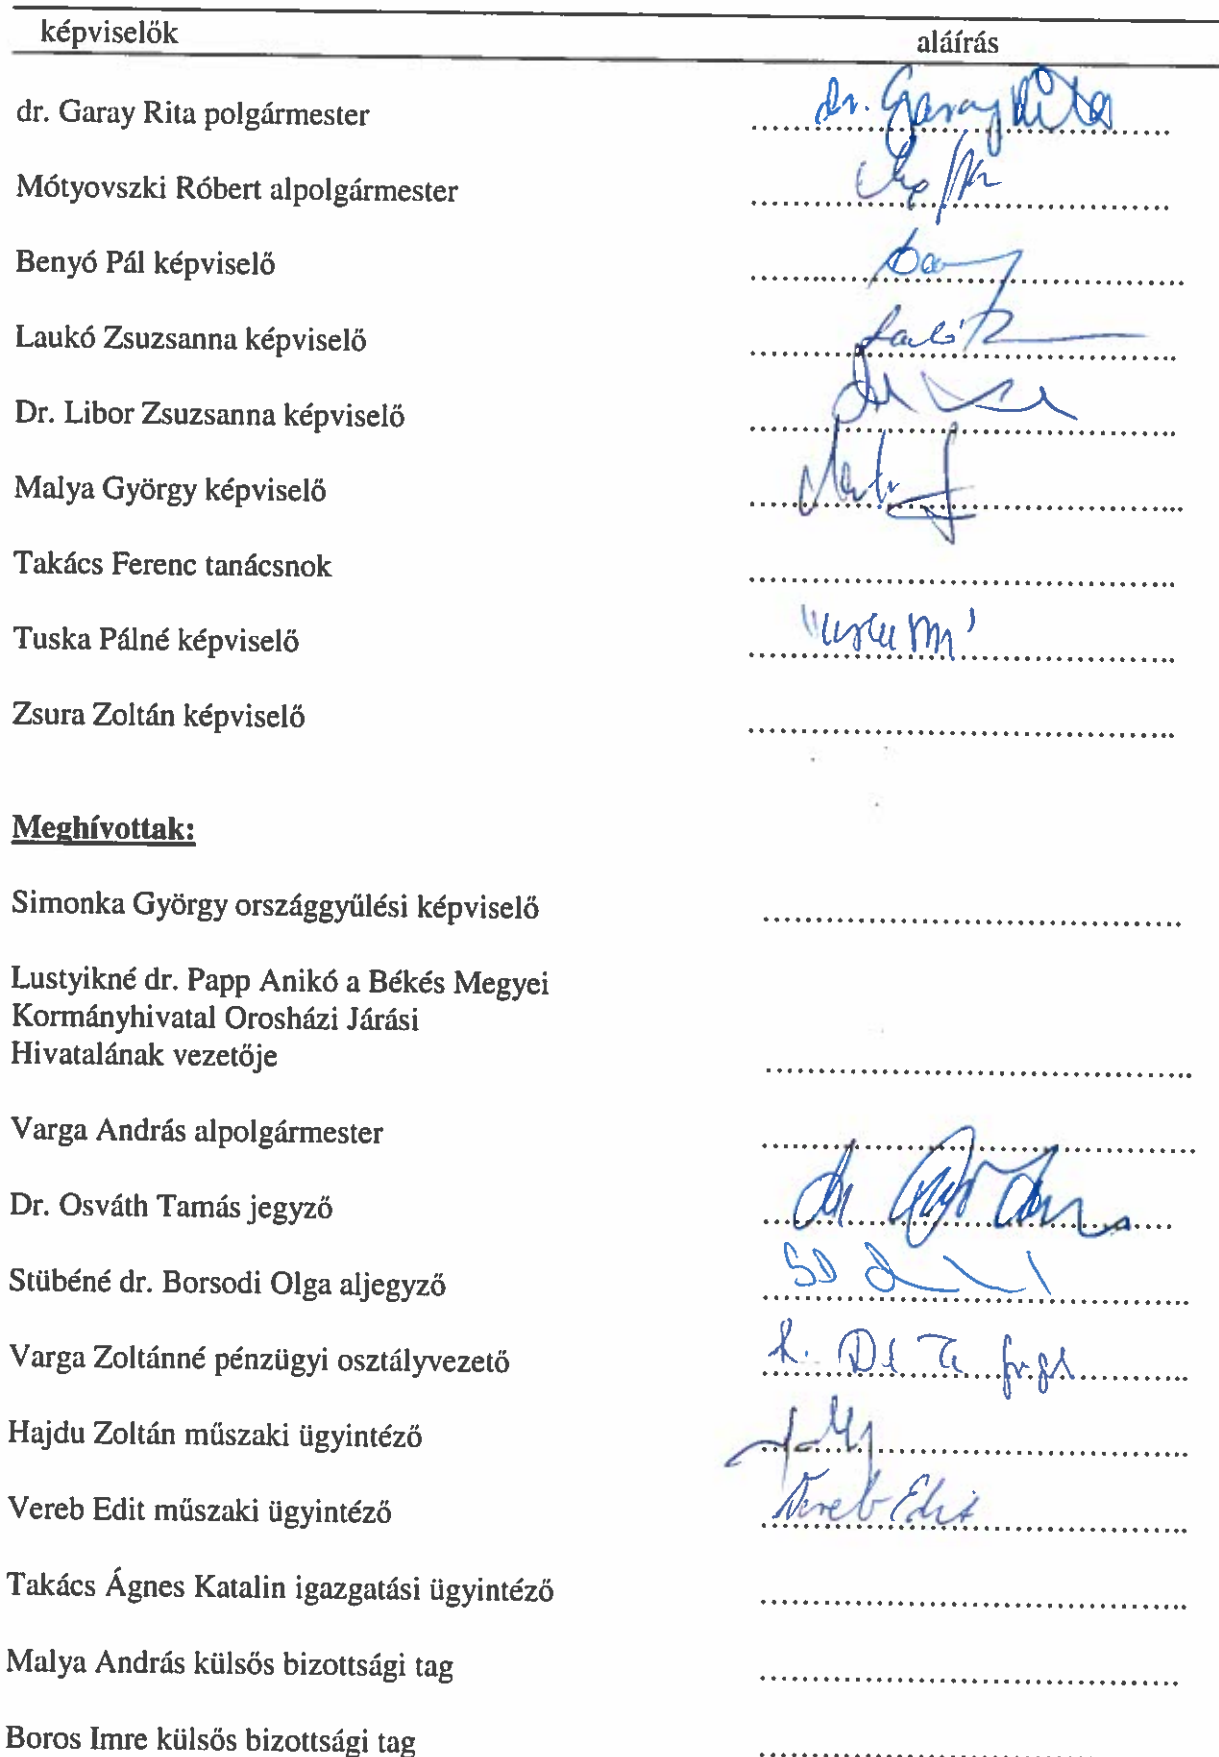 képviselők aláírás
dr. Garay Rita polgármester dr. Garay Rita
Mótyovszki Róbert alpolgármester
Benyó Pál képviselő
Laukó Zsuzsanna képviselő
Dr. Libor Zsuzsanna képviselő
Malya György képviselő
Takács Ferenc tanácsnok
Tuska Pálné képviselő
Zsura Zoltán képviselő
Meghívottak:
Simonka György országgyűlési képviselő
Lustyikné dr. Papp Anikó a Békés Megyei
Kormányhivatal Orosházi Járási
Hivatalának vezetője
Varga András alpolgármester
Dr. Osváth Tamás jegyző
Stübéné dr. Borsodi Olga aljegyző
Varga Zoltánné pénzügyi osztályvezető
Hajdu Zoltán műszaki ügyintéző
Vereb Edit műszaki ügyintéző Vereb Edit
Takács Ágnes Katalin igazgatási ügyintéző
Malya András külsős bizottsági tag
Boros Imre külsős bizottsági tag